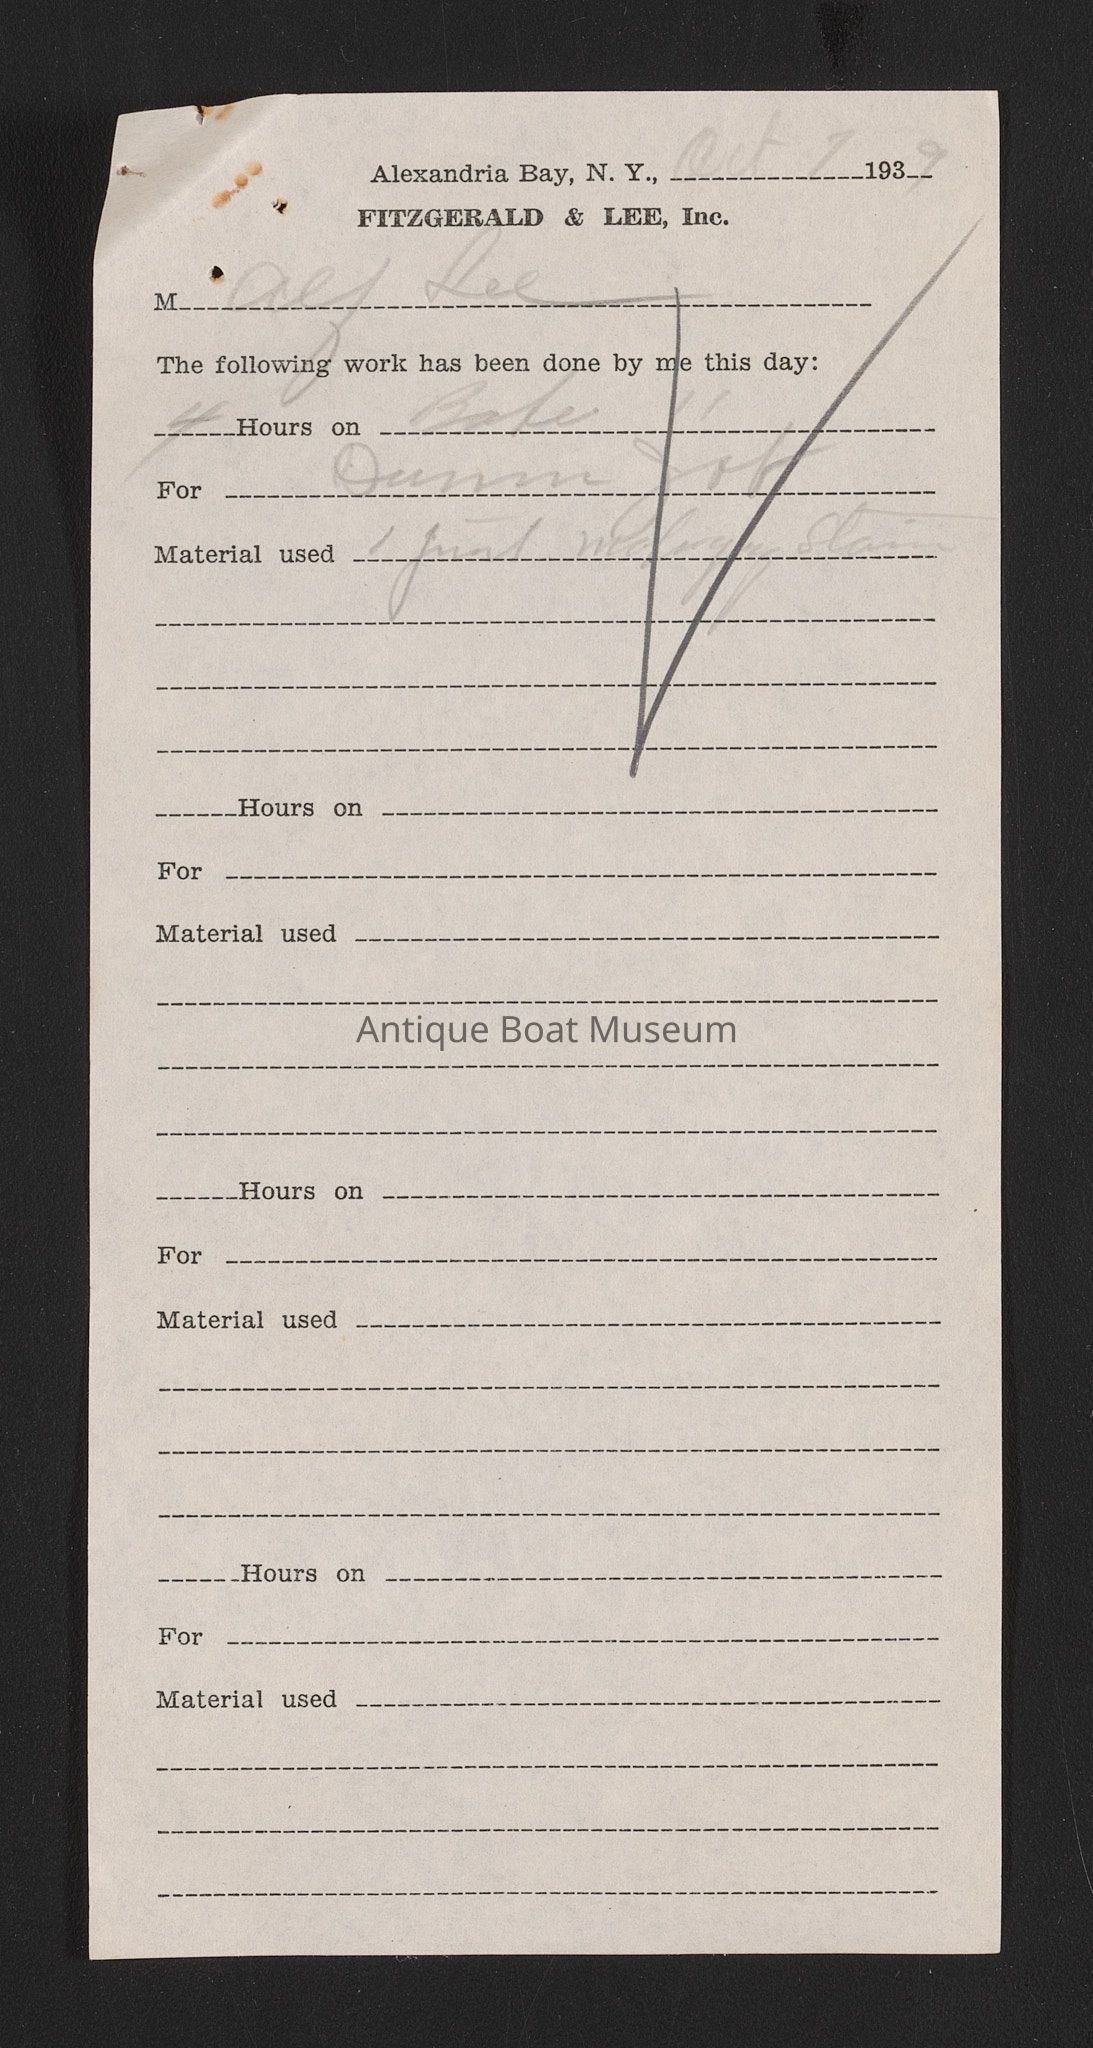 Alexandria Bay, N. Y., Oct 7 1939
FITZGERALD & LEE, Inc.
M Alf Lee
The following work has been done by me this day:
4 Hours on
For Dunn Job
Material used 1 Stain
Hours on
For
Material used
Antique Boat Museum
Hours on
For
Material used
Hours on
For
Material used